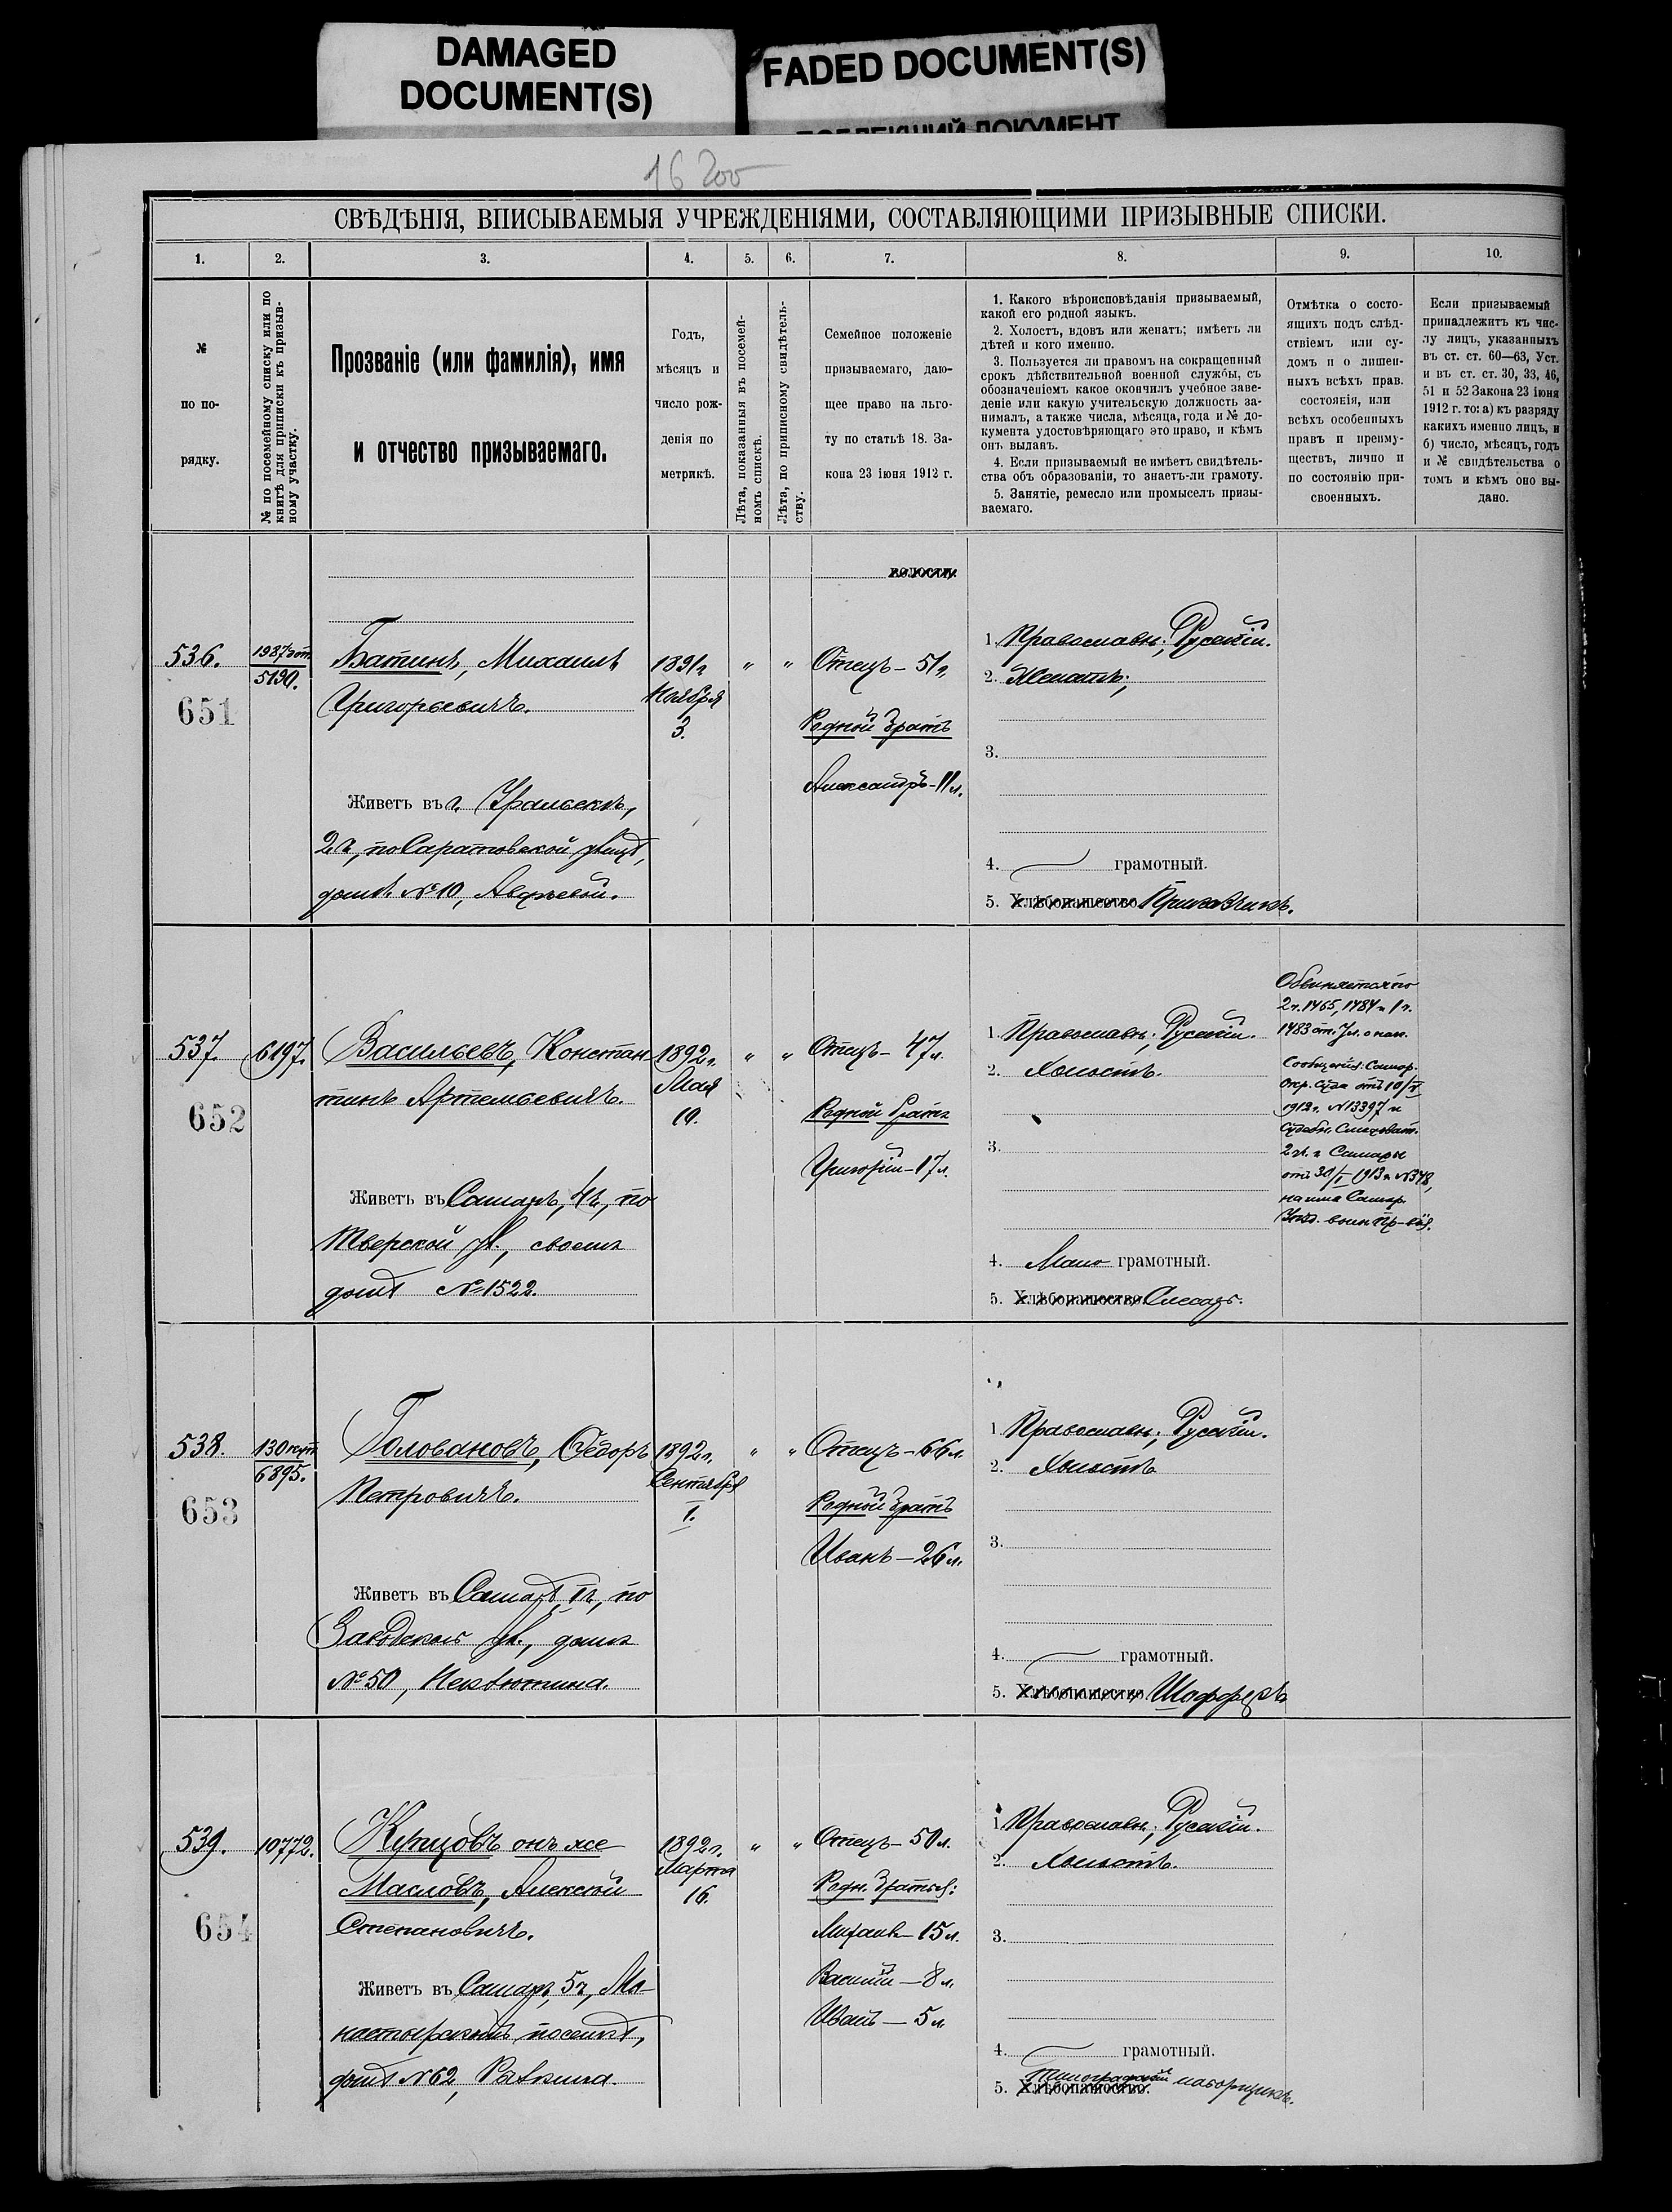 DAMAGED
DOCUMENT(S)
FADED DOCUMENT(S)
16 200
СВѢДѢНІЯ, ВПИСЫВАЕМЫЯ УЧРЕЖДЕНІЯМИ, СОСТАВЛЯЮЩИМИ ПРИЗЫВНЫЕ СПИСКИ.
1. 2. 3. 4. 5. 6. 7. 8. 9. 10.
№
по по-
рядку.
№ по посемейному списку или по
книгѣ для приписки къ призыв-
ному участку.
Прозваніе (или фамилія), имя
и отчество призываемаго.
Годъ,
мѣсяцъ и
число рож-
денія по
метрикѣ.
Лѣта, показанныя въ посемей-
номъ спискѣ.
Лѣта, по приписному свидѣтель-
ству.
Семейное положеніе
призываемаго, даю-
щее право на льго-
ту по статьѣ 18. За-
кона 23 іюня 1912 г.
1. Какого вѣроисповѣданія призываемый,
какой его родной языкъ.
2. Холостъ, вдовъ или женатъ; имѣетъ ли
дѣтей и кого именно.
3. Пользуется ли правомъ на сокращенный
срокъ дѣйствительной военной службы, съ
обозначеніемъ какое окончилъ учебное заве-
деніе или какую учительскую должность за-
нималъ, а также числа, мѣсяца, года и № до-
кумента удостовѣряющаго это право, и кѣмъ
онъ выданъ.
4. Если призываемый не имѣетъ свидѣтель-
ства объ образованіи, то знаетъ-ли грамоту.
5. Занятіе, ремесло или промыселъ призы-
ваемаго.
Отмѣтка о состо-
ящихъ подъ слѣд-
ствіемъ или су-
домъ и о лишен-
ныхъ всѣхъ прав.
состоянія, или
всѣхъ особенныхъ
правъ и преиму-
ществъ, лично и
по состоянію при-
своенныхъ.
Если призываемый
принадлежитъ къ чис-
лу лицъ, указанныхъ
въ ст. ст. 60—63, Уст.
и въ ст. ст. 30, 33, 46,
51 и 52 Закона 23 іюня
1912 г. то: а) къ разряду
какихъ именно лицъ, и
б) число, мѣсяцъ, годъ
и № свидѣтельства о
томъ и кѣмъ оно вы-
дано.
волости
536.
651
5190.
Батинъ, Михаилъ
Григорьевичъ.
Живетъ въ г. Уральскѣ,
2 ч, по Саратовской улицѣ,
домъ № 10, Авдѣевой.
1891 г.
Ноября
3.
" "
Отецъ - 51 г.
Родной братъ
Александръ - 11 л.
1. Православн; Русскій.
2. Женатъ;
3.
4. грамотный.
5. Хлѣбопашество Прикащикъ.
537.
652
6197.
Васильевъ, Констан
тинъ Артемьевичъ.
Живетъ въ Самарѣ, 4 ч, по
Тверской ул., своемъ
домѣ № 1522.
1892 г.
Мая
19.
" "
Отецъ - 47 л.
Родной братъ
Григорій - 17 л.
1. Православн; Русскій.
2. Холостъ.
3.
4. Мало грамотный.
5. Хлѣбопашество Слесарь.
Обвиняется по
2 ч. 1465, 1484 и 1 ч.
1483 ст. Ул. о нак.
Сообщенія: Самар.
Окр. Суда отъ
1912 г. № 13397 и
Судебн. Слѣдоват.
2 уч. г. Самары
отъ 30/I 1913 г. № 378,
на имя Самар.
538.
653
6895.
Головановъ, Ѳедоръ
Петровичъ.
Живетъ въ Самарѣ, I ч, по
Заводской ул., домъ
№ 50, Неклютина.
1892 г.
Сентября
1.
" "
Отецъ - 66 л.
Родной братъ
Иванъ - 26 л.
1. Православн; Русскій.
2. Холостъ
3.
4. грамотный.
5. Хлѣбопашество Шофферъ
539.
654
10772.
Купцовъ онъ же
Масловъ, Алексѣй
Степановичъ.
Живетъ въ Самарѣ, 5 ч, Мо-
настырскомъ поселкѣ,
домъ № 62,
1892 г.
Марта
16.
" "
Отецъ - 50 л.
Родн. братья:
Михаилъ - 15 л.
Василій - 8 л.
Иванъ - 5 л.
1. Православн; Русскій.
2. Холостъ.
3.
4. грамотный.
Типографскій наборщикъ.
5. Хлѣбопашество.